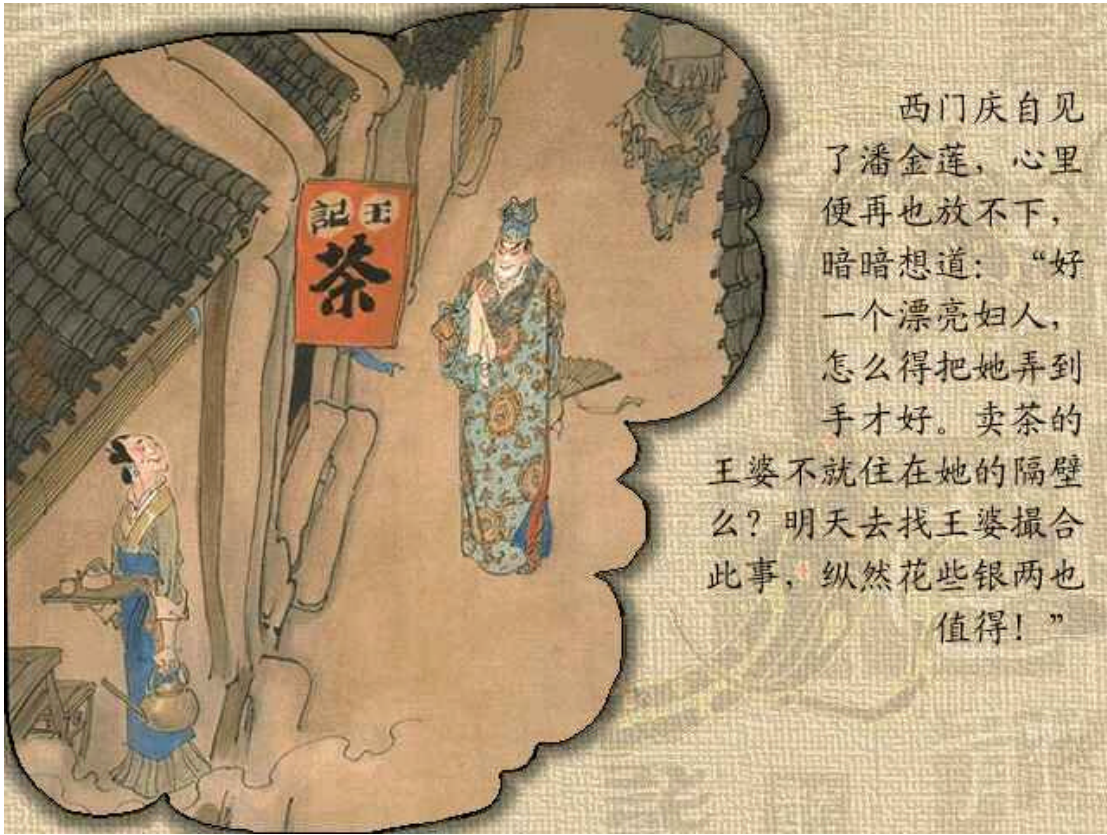 記王
茶
西门庆自见
了潘金莲，心里
便再也放不下，
暗暗想道：“好
一个漂亮妇人，
怎么得把她弄到
手才好。卖茶的
王婆不就住在她的隔壁
么？明天去找王婆撮合
此事，纵然花些银两也
值得！”